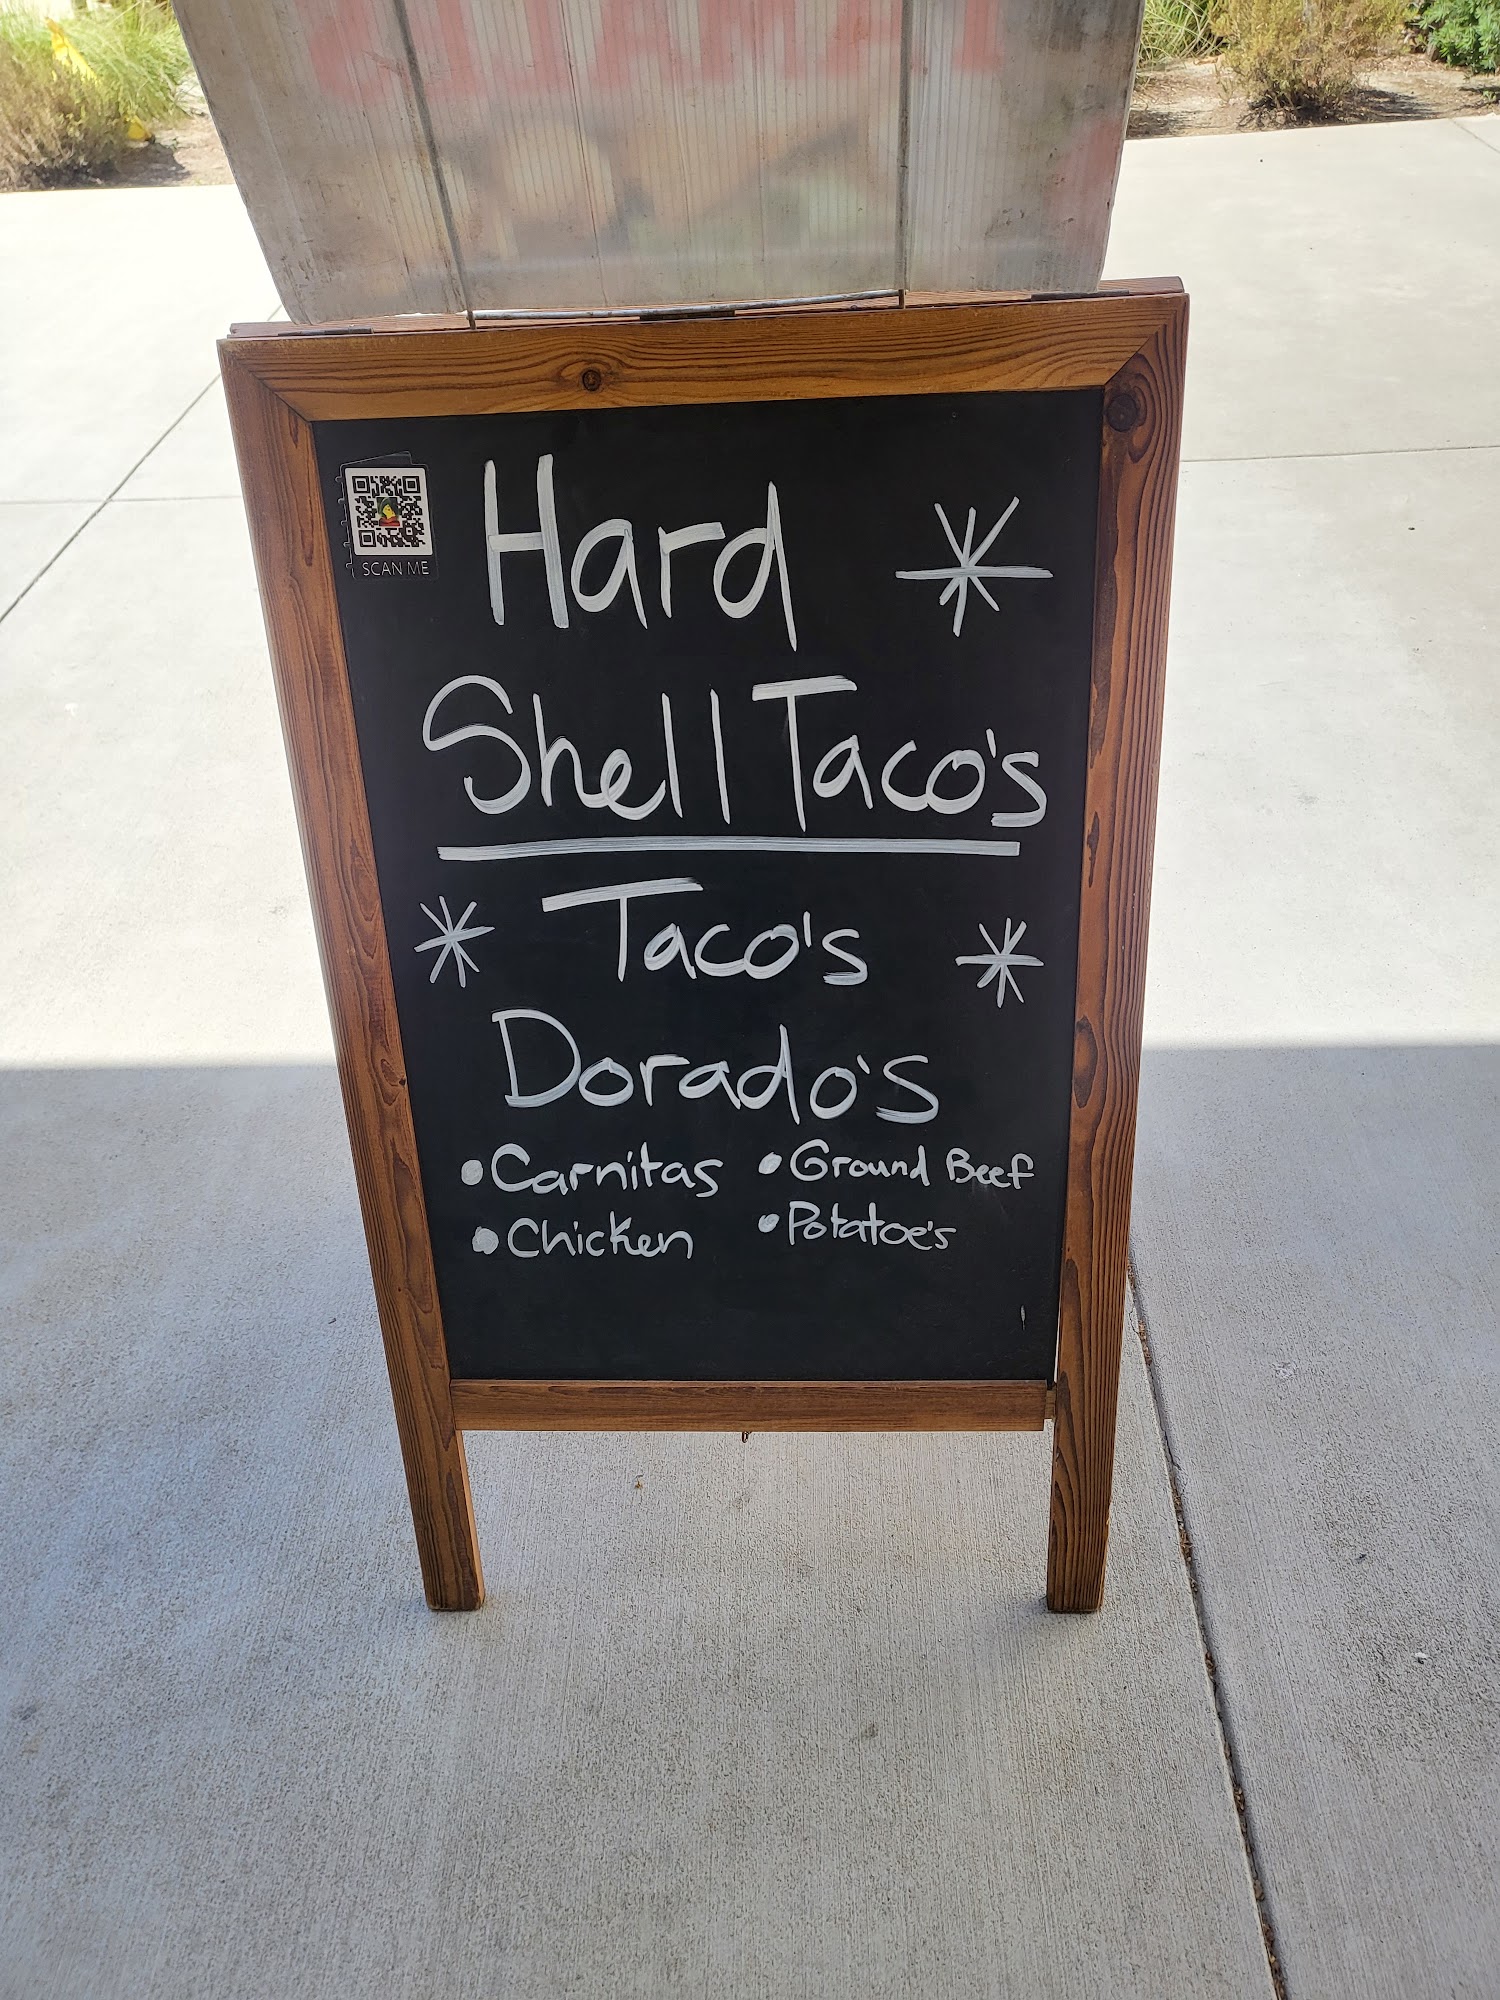 SCAN ME
Hard
Shell Taco's
Taco's
Dorado's
• Carnitas • Ground Beef
• Chicken • Potatoe's